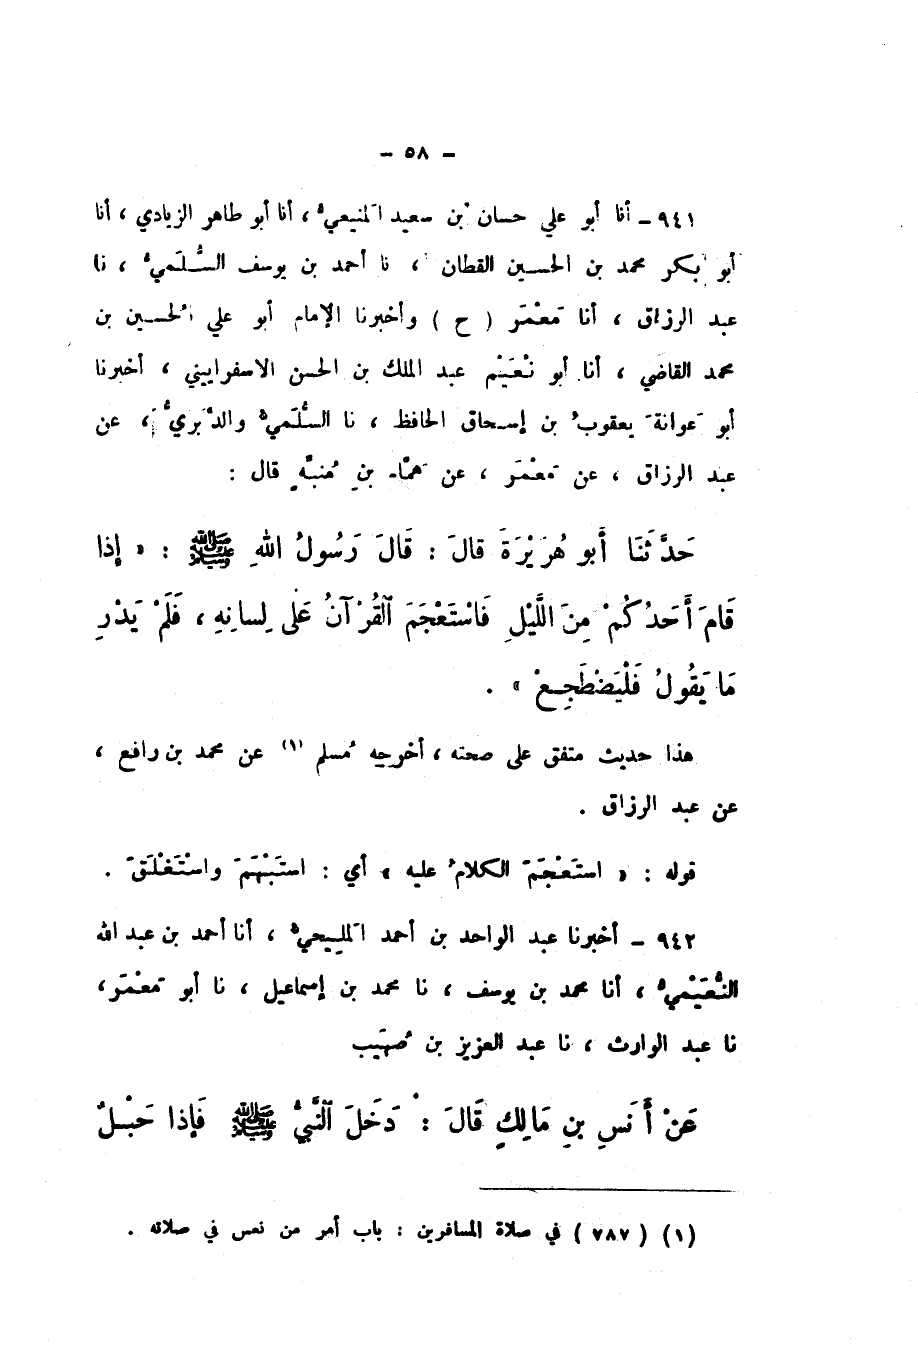 - ٥٨ -
٩٤١ - أنا أبو علي حسان بن سعيد المنيعيُّ ، أنا أبو طاهر الزيادي ، أنا
أبو بكر محمد بن الحسين القطان ، نا أحمد بن يوسف السُّلَميُّ ، نا
عبد الرزاق ، أنا مَعْمَر ( ح ) وأخبرنا الإمام أبو علي الحسين بن
محمد القاضي ، أنا أبو نُعَيْم عبد الملك بن الحسن الاسفراييني ، أخبرنا
أبو عَوانةَ يعقوبُ بن إسحاق الحافظ ، نا السُّلَميُّ والدَّبَريُّ ، عن
عبد الرزاق ، عن مَعْمَر ، عن همَّام بنِ مُنبِّهٍ قال :
حَدَّثَنَا أَبو هُرَيْرَةَ قالَ : قَالَ رَسُولُ اللهِ ﷺ : « إِذا
قَامَ أَحَدُكُمْ مِنَ اللَّيْلِ فَاسْتَعْجَمَ ٱلقُرْآنُ عَلَى لِسانِهِ ، فَلَمْ يَدْرِ
مَا يَقُولُ فَلْيَضْطَجِعْ » .
هذا حديث متفق على صحته ، أخرجه مُسلم (١) عن محمد بن رافع ،
عن عبد الرزاق .
قوله : « استَعْجَمَ الكلامُ عليه » أي : استَبْهَمَ واسْتَغْلَقَ .
٩٤٢ - أخبرنا عبد الواحد بن أحمد المَليحيُّ ، أنا أحمد بن عبد الله
النُّعَيْميُّ ، أنا محمد بن يوسف ، نا محمد بن إسماعيل ، نا أبو مَعْمَر ،
نا عبد الوارث ، نا عبد العزيز بن صُهَيب
عَنْ أَنَسِ بنِ مَالِكٍ قَالَ : دَخَلَ ٱلنَّبيُّ ﷺ فَإِذا حَبْلٌ
(١) ( ٧٨٧ ) في صلاة المسافرين : باب أمر من نعس في صلاته .